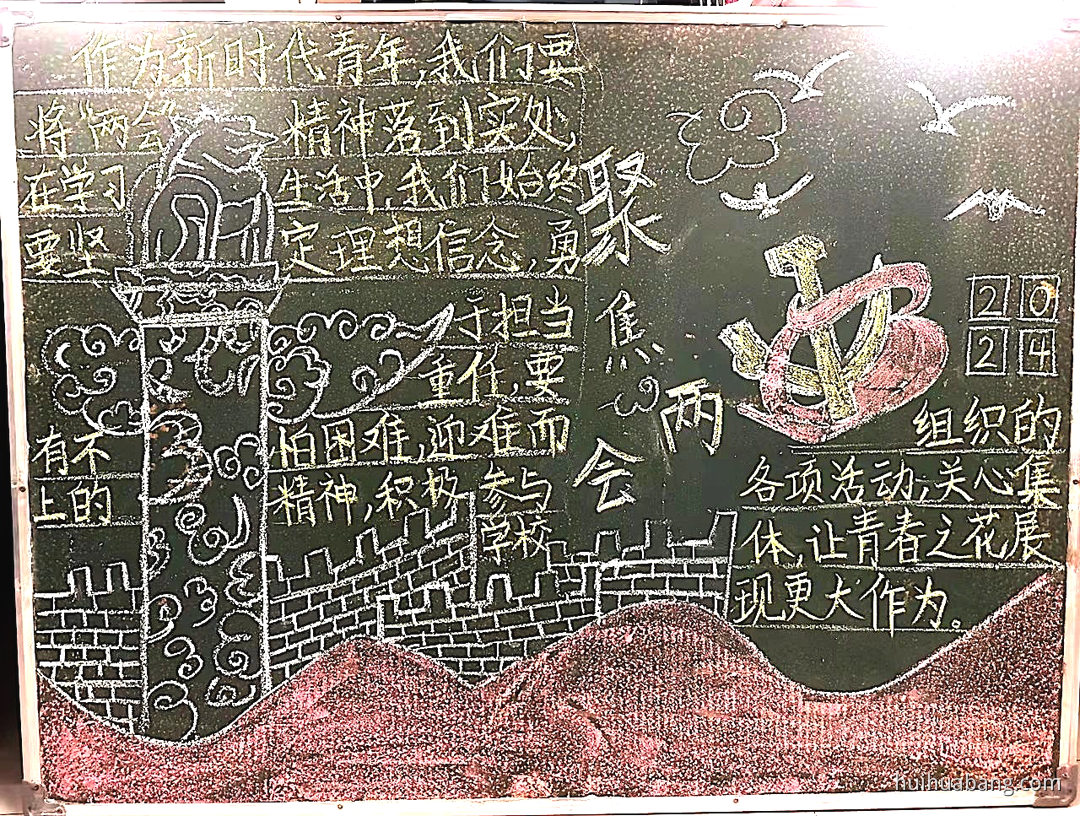 作为新时代青年,我们要
将“两会”精神落到实处,
在学习生活中,我们始终
要坚定理想信念,勇
于担当
重任,要
有不怕困难,迎难而
上的精神,积极参与
学校
组织的
各项活动,关心集
体,让青春之花展
现更大作为。
聚焦两会
20
24
huihuabang.com